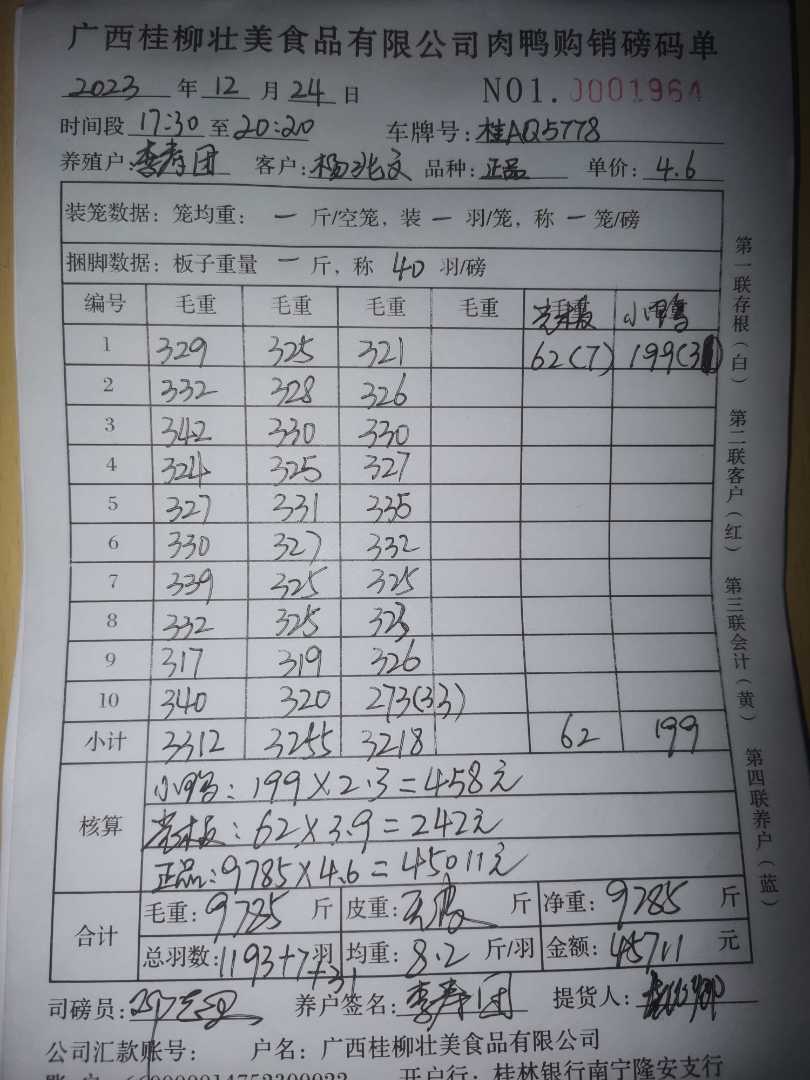 广西桂柳壮美食品有限公司肉鸭购销磅码单
2023 年 12 月 24 日 NO1. 0001964
时间段 17:30 至 20:20 车牌号: 桂AQ5778
养殖户: 李寿团 客户: 杨兆文 品种: 正品 单价: 4.6
装笼数据: 笼均重: 一 斤/空笼, 装 一 羽/笼, 称 一 笼/磅
捆脚数据: 板子重量 一 斤, 称 40 羽/磅
编号 毛重 毛重 毛重 毛重 小鸭
1 329 325 321 62(7) 199(31)
2 332 328 326
3 342 330 330
4 324 325 327
5 327 331 335
6 330 327 332
7 339 325 325
8 332 325 323
9 317 319 326
10 340 320 273(33)
小计 3312 3255 3218 62 199
核算
小鸭: 199×2.3=458元
: 62×3.9=242元
正品: 9785×4.6=45011元
合计
毛重: 9785 斤 皮重: 斤 净重: 9785 斤
总羽数: 1193+7+31 羽 均重: 8.2 斤/羽 金额: 45711 元
司磅员: 养户签名: 李寿团 提货人:
公司汇款账号: 户名: 广西桂柳壮美食品有限公司
开户行: 桂林银行南宁隆安支行
第一联存根(白)
第二联客户(红)
第三联会计(黄)
第四联养户(蓝)